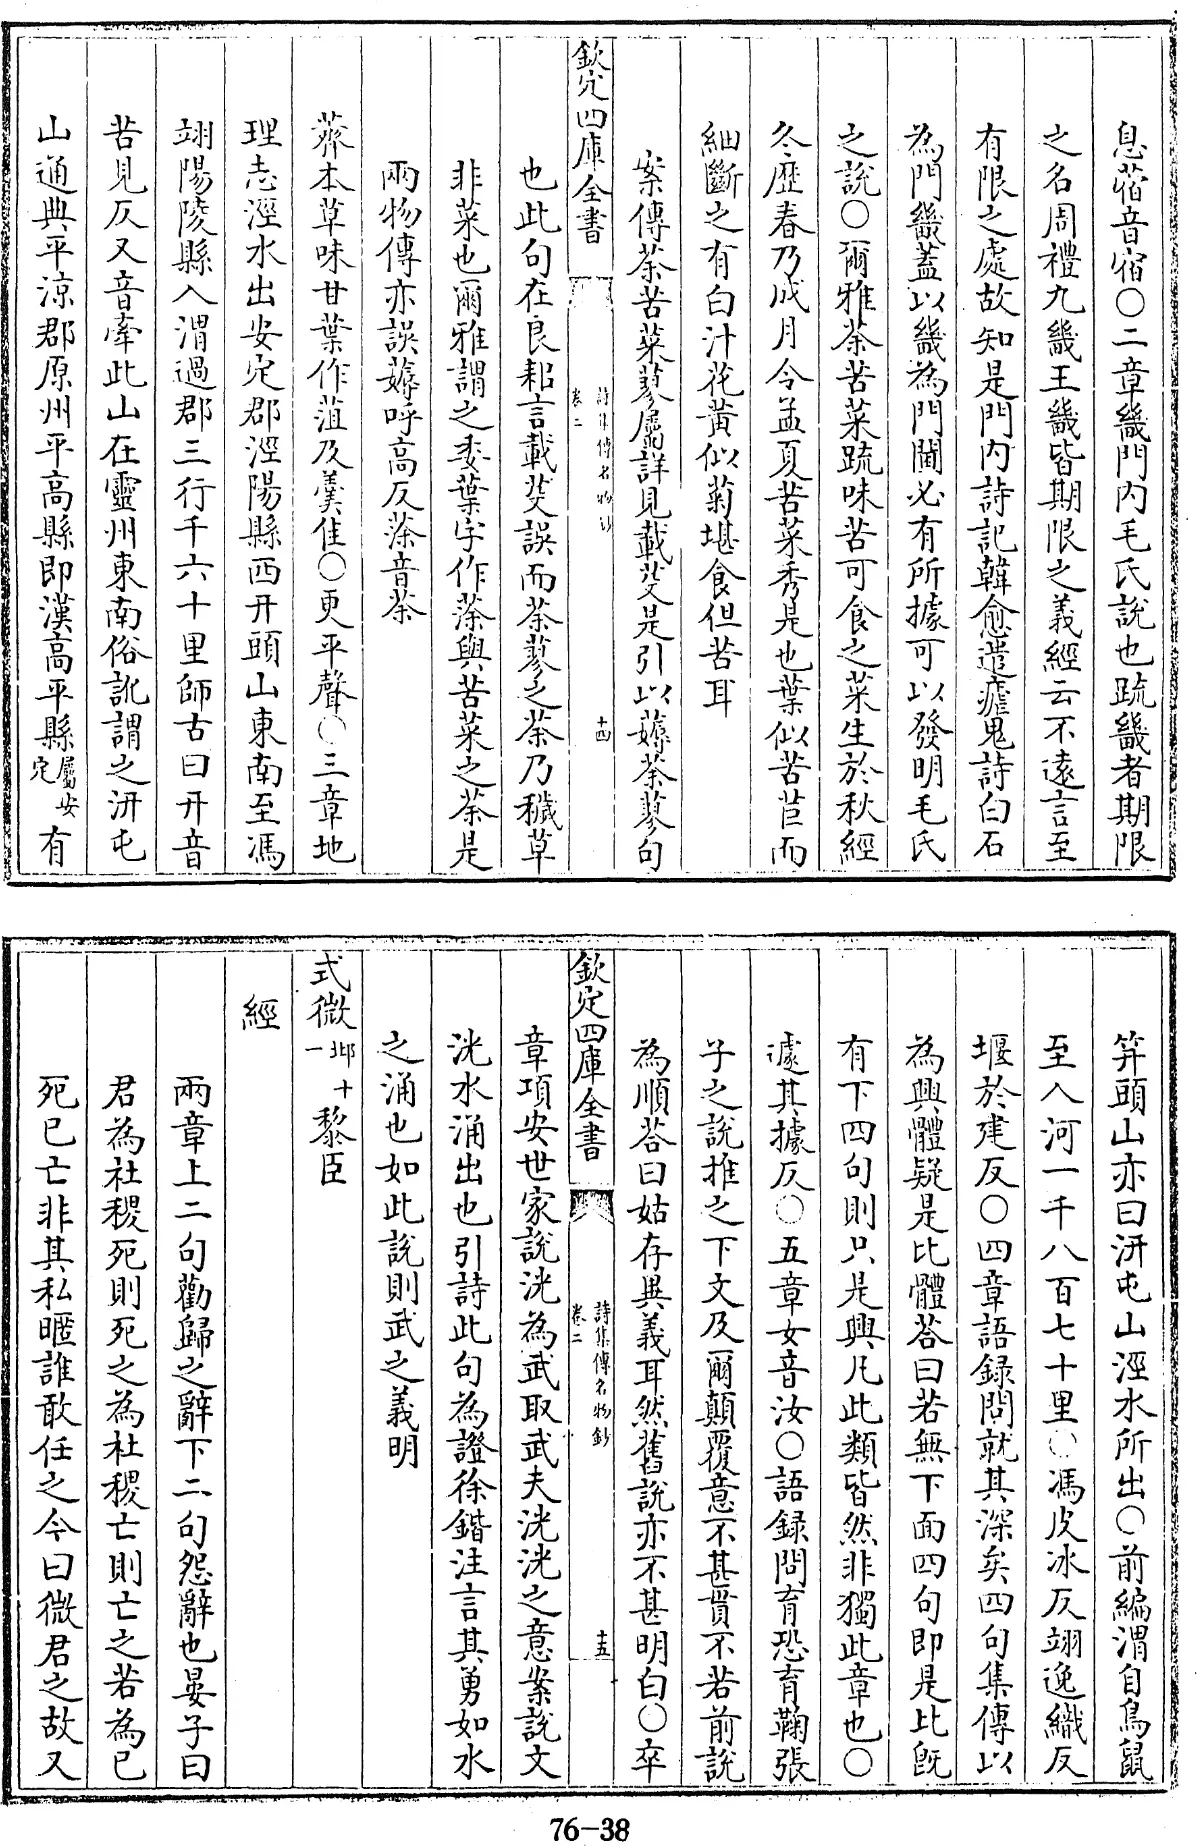 息蓿音宿○二章畿門内毛氏說也疏畿者期限
之名周禮九畿王畿皆期限之義經云不遠言至
有限之處故知是門内詩記韓愈遣瘧鬼詩白石
為門畿蓋以畿為門閫必有所據可以發明毛氏
之說○爾雅荼苦菜疏味苦可食之菜生於秋經
冬歴春乃成月令孟夏苦菜秀是也葉似苦苣而
細斷之有白汁花黄似菊堪食但苦耳
案傳荼苦菜蓼屬詳見載芟是引以薅荼蓼句
欽定四庫全書
詩集傳名物鈔
卷二
十四
也此句在良耜言載芟誤而荼蓼之荼乃穢草
非菜也爾雅謂之委葉字作蒤與苦菜之荼是
兩物傳亦誤薅呼高反蒤音荼
薺本草味甘葉作菹及羹佳○更平聲○三章地
理志涇水出安定郡涇陽縣西幵頭山東南至馮
翊陽陵縣入渭過郡三行千六十里師古曰幵音
苦見反又音牽此山在靈州東南俗訛謂之汧屯
山通典平涼郡原州平高縣即漢高平縣屬安定有
笄頭山亦曰汧屯山涇水所出○前編渭自鳥鼠
至入河一千八百七十里○馮皮冰反翊逸織反
堰於建反○四章語録問就其深矣四句集傳以
為興體疑是比體荅曰若無下面四句即是比既
有下四句則只是興凡此類皆然非獨此章也○
遽其據反○五章女音汝○語録問育恐育鞠張
子之說推之下文及爾顛覆意不甚貫不若前說
為順荅曰姑存異義耳然舊說亦不甚明白○卒
欽定四庫全書
詩集傳名物鈔
卷二
十五
章項安世家說洸為武取武夫洸洸之意案說文
洸水涌出也引詩此句為證徐鍇注言其勇如水
之涌也如此說則武之義明
式微邶十一黎臣
經
兩章上二句勸歸之辭下二句怨辭也晏子曰
君為社稷死則死之為社稷亡則亡之若為已
死已亡非其私暱誰敢任之今曰微君之故又
76-38